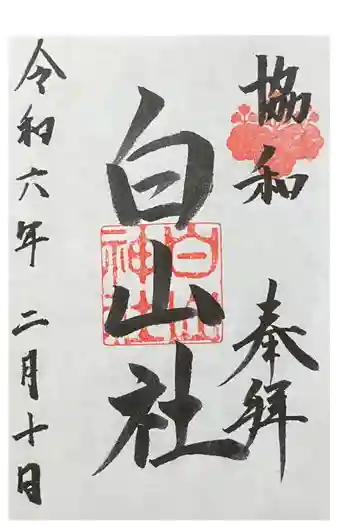 協和
奉拝
白山社
白山
神社
令和六年 二月十日